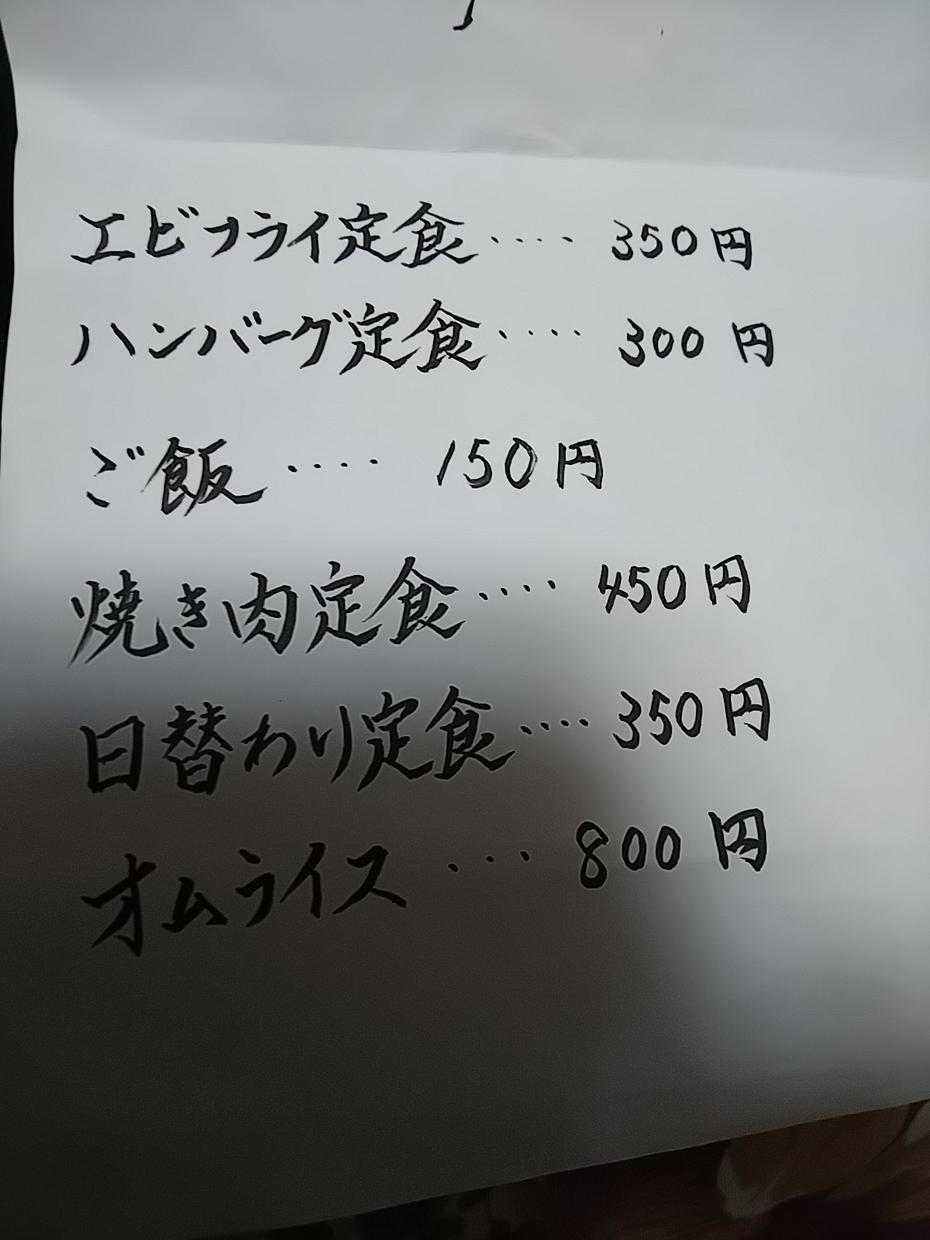 エビフライ定食‥‥350円
ハンバーグ定食‥‥300円
ご飯‥‥150円
焼き肉定食‥‥450円
日替わり定食‥‥350円
オムライス‥‥800円